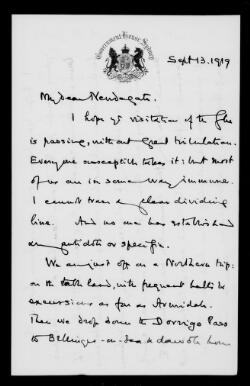 Government House, Sydney
Sept 13. 1919
My dear Newdegate.
I hope yr visitation of the Flu
is passing, without great tribulation.
Everyone susceptible takes it: but most
of us are in some way immune.
I cannot trace a clear dividing
line. And no one has established
any antidote or specific.
We are just off on a Northern trip:
on the table land, with frequent halts &
excursions as far as Armidale.
Then we drop down to Dorrigo Pass
to Bellinger - &